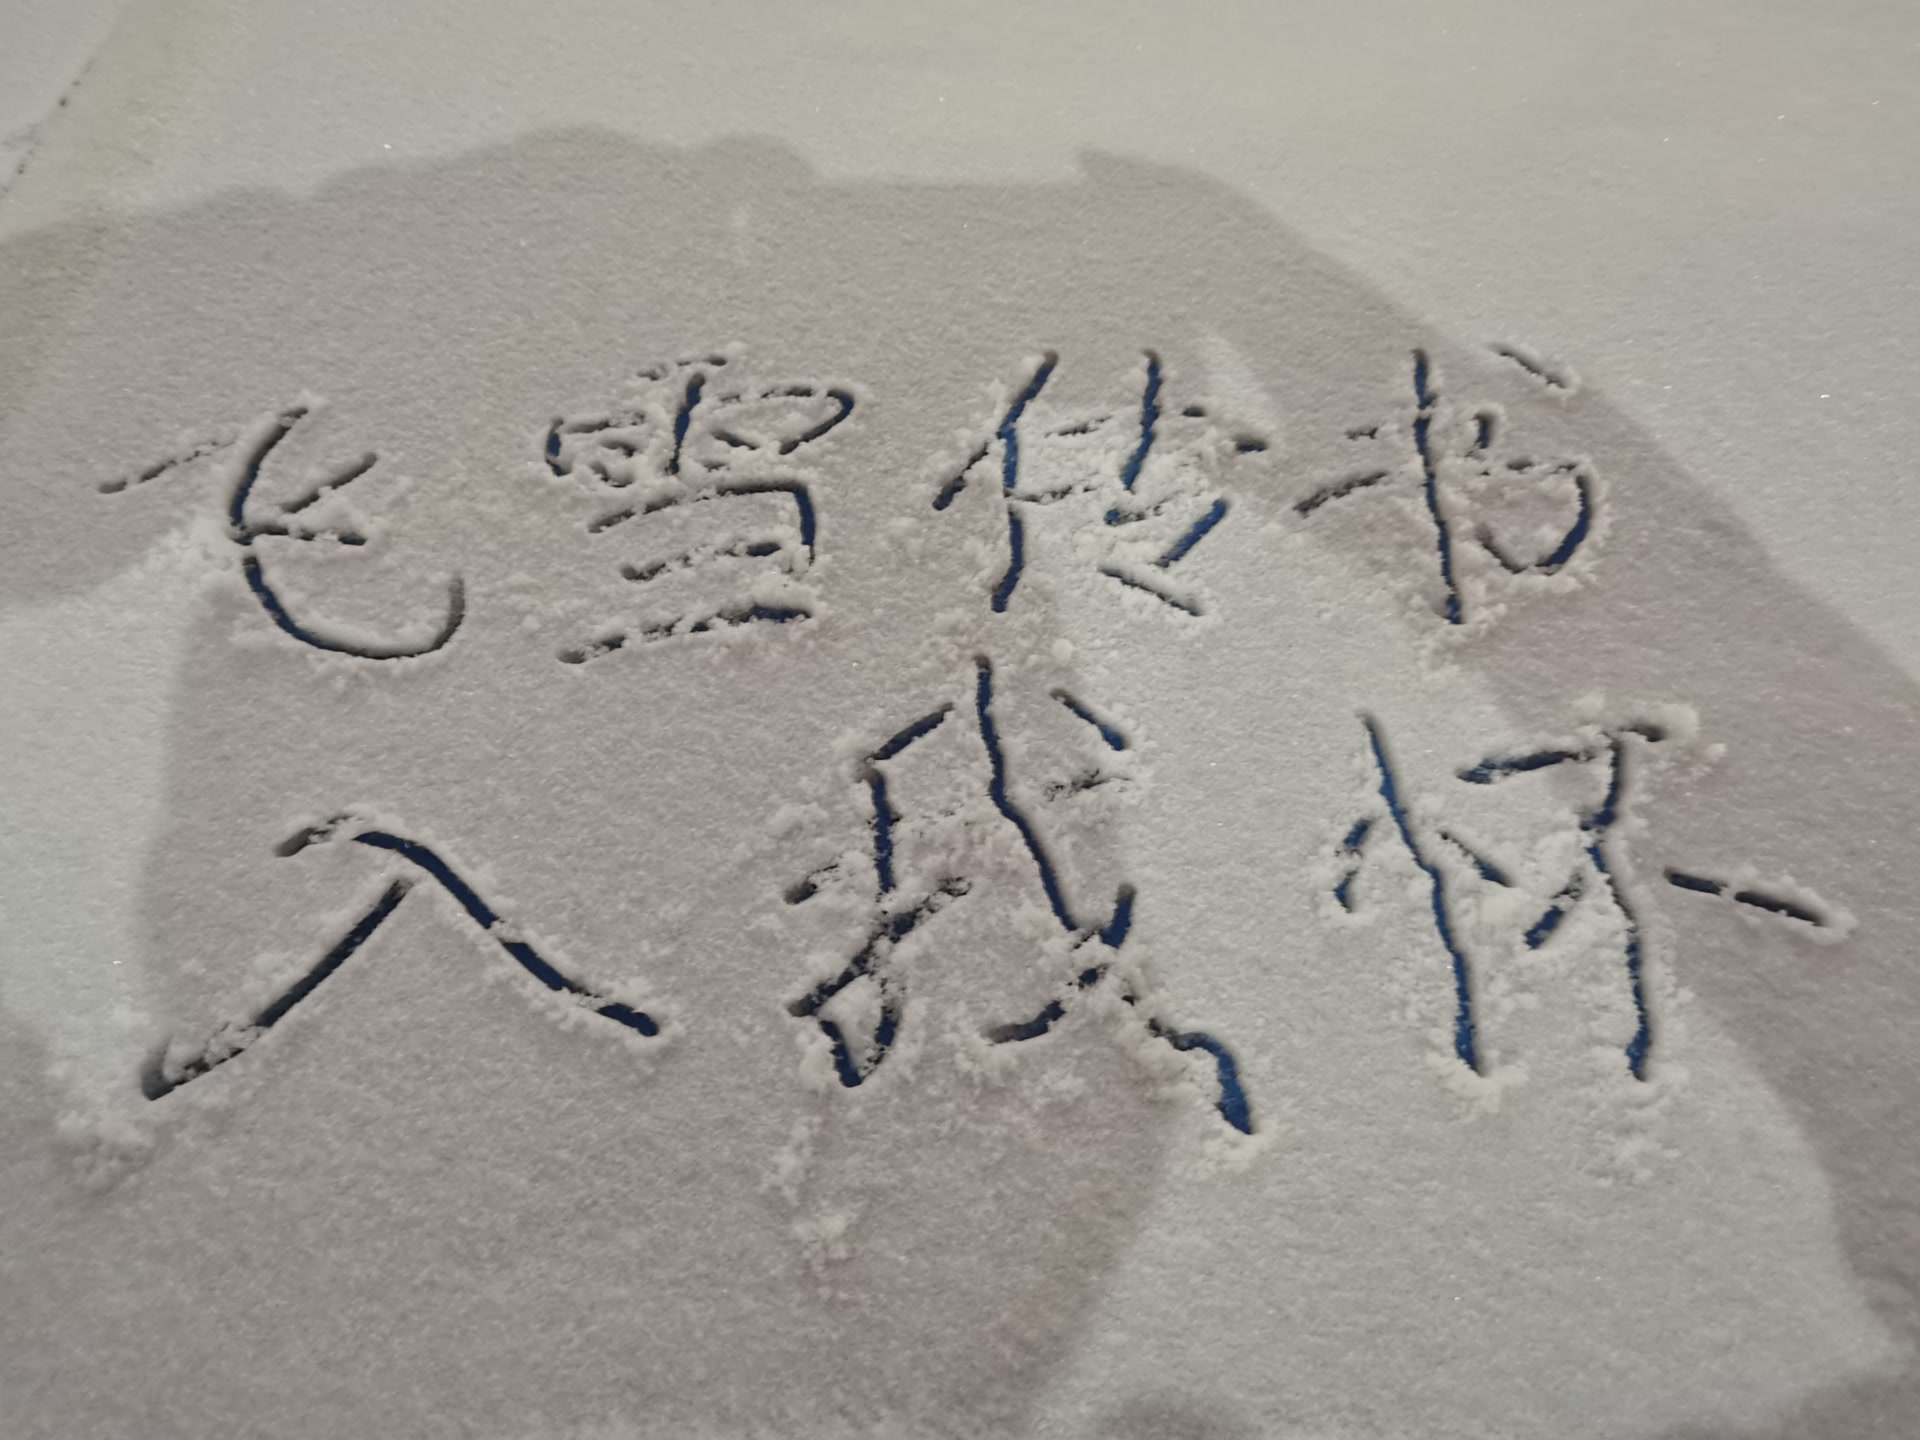 飞雪传书
入我怀